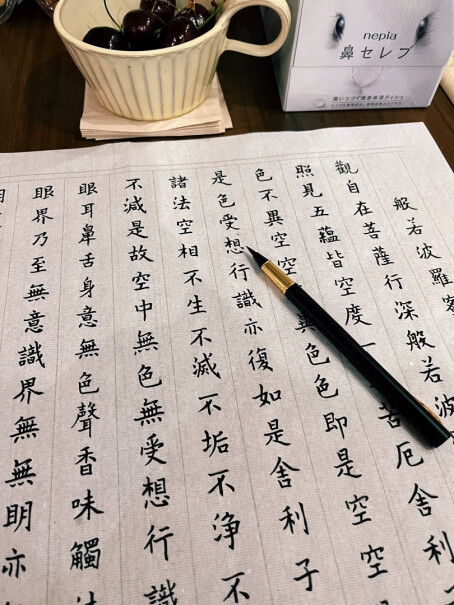 nepia
鼻セレブ
般若波羅
觀自在菩薩行深般若波
照見五蘊皆空度一苦厄舍利
色不異空空異色色即是空空
是色受想行識亦復如是舍利子
諸法空相不生不滅不垢不淨不
不減是故空中無色無受想行識
眼耳鼻舌身意無色聲香味觸
眼界乃至無意識界無無明亦